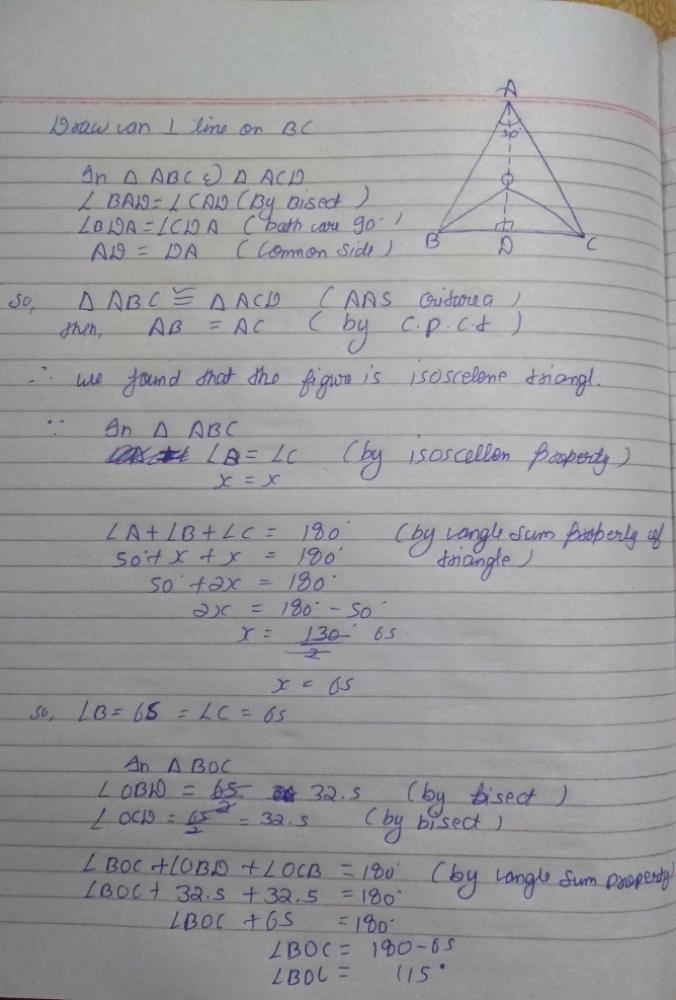 A
Draw an ⊥ line on BC
50°
In Δ ABC & Δ ACD
∠BAD = ∠CAD (By Bisect)
∠BDA = ∠CDA (both are 90°)
AD = DA (Common side)
O
B D C
so, Δ ABC ≅ Δ ACD (AAS criterea)
then, AB = AC (by C.P.C.t)
∴ we found that the figure is isoscelene triangl.
∵ In Δ ABC
∠B = ∠C (by isoscellen property)
x = x
∠A + ∠B + ∠C = 180° (by angle sum property of
50° + x + x = 180° triangle)
50° + 2x = 180°
2x = 180° - 50°
x = 130°/2 65
x = 65
so, ∠B = 65 = ∠C = 65
In Δ BOC
∠OBD = 65/2 32.5 (by bisect)
∠OCD = 65/2 = 32.5 (by bisect)
∠BOC + ∠OBD + ∠OCB = 180° (by angle sum property)
∠BOC + 32.5 + 32.5 = 180°
∠BOC + 65 = 180°
∠BOC = 180 - 65
∠BOC = 115°